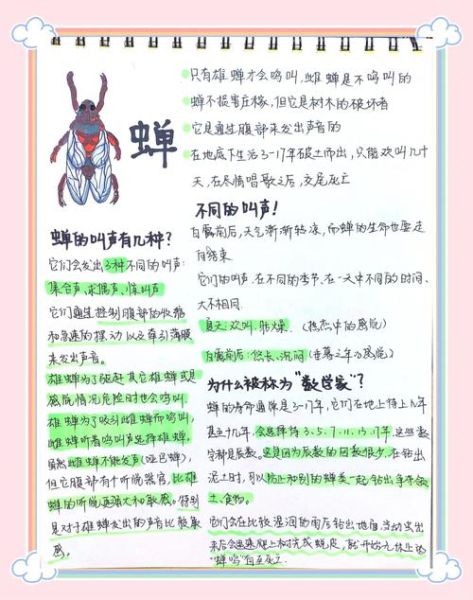 只有雄蝉才会鸣叫,雌蝉是不鸣叫的
蝉不损害庄稼,但它是树木的破坏者
它是通过腹部来发出声音的
在地底下生活3-17年破土而出,只能欢叫几十
天,在尽情唱歌之后,交尾死亡
蝉
不同的叫声!
白露前后,天气渐渐转凉,而蝉的生命也要走
向结束
它们的叫声,在不同的季节、在一天中不同的时间、
大不相同.
夏天:欢叫、
白露前后:悠长、沉闷
蝉的叫声有几种?
它们会发出3种不同的叫声:
集合声、求偶声、惊叫声
它们通过控制腹部的收缩
和高速的振动以及牵引薄膜
来发出声音。
雄蝉为了驱赶其它雄蝉或是
情况危险时也会鸣叫.
雄蝉为了吸引雌蝉而鸣叫,
雌蝉听着鸣叫声选择雄蝉。
虽然雌蝉不能发声(哑巴蝉),
但它腹部有个听觉器官,比雄
蝉的听觉更强大和敏感。特别
是对于雄蝉发出的声音比较敏
感。
为什么被称为“数学家”?
蝉的寿命通常是3-17年,它们在地上待上几年
甚至十几年,会选择待3、5、7、11、13、17年,这些数
字都是质数。这是因为质数的因数很少,在钻出
泥土时,可以防止和别的蝉类一起钻出争夺领
土、食物。
它们会在比较湿润的雨后钻出地面,当幼虫出
来后会迅速爬上树完成蜕皮,就开始
“蝉鸣”直至死亡.